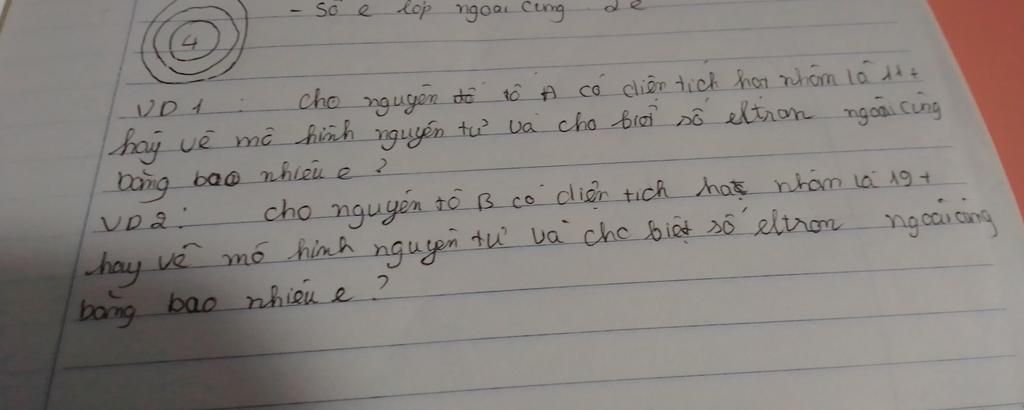 - Số e lớp ngoài cùng 2e
4
VD1 : Cho nguyên tố A có diện tích hạt nhôm là 11+
hãy vẽ mô hình nguyên tử và cho biết số eltron ngoài cùng
bằng bao nhiêu e ?
VD2 : Cho nguyên tố B có diện tích hạt nhôm là 19+
hay vẽ mô hình nguyên tử và cho biết số eltron ngoài cùng
bằng bao nhiêu e ?